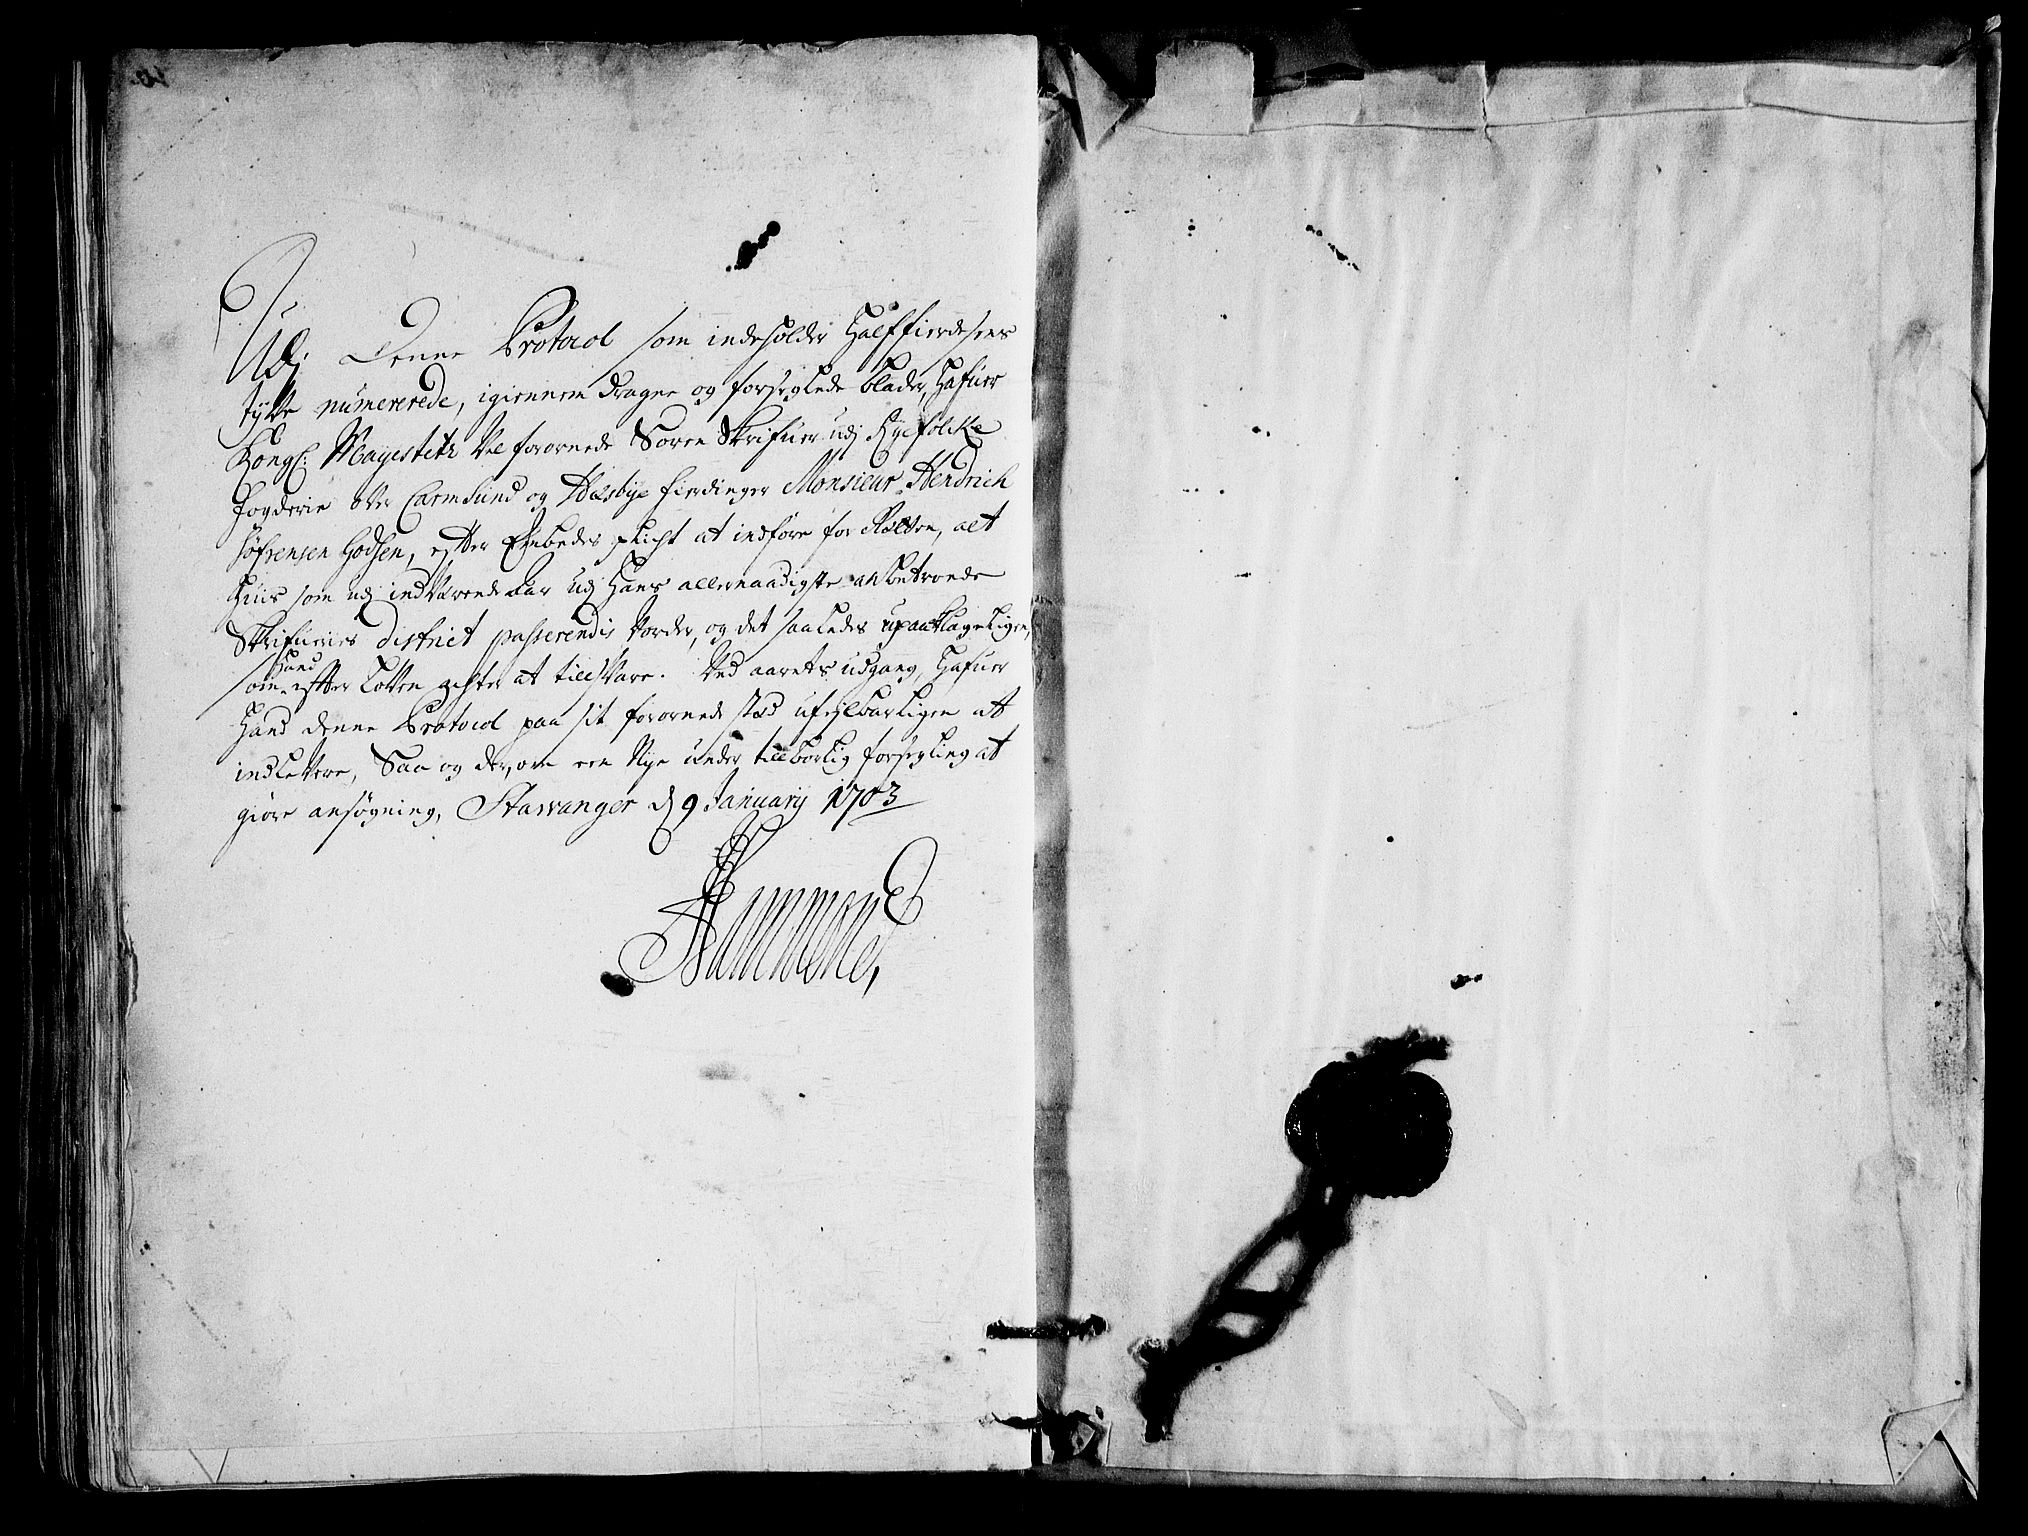 Udj Denne Protocol som indeholder Halffierdesens
tyve numererede, igiennem dragne og forseglede blader, Hafuer
Kongl: Mayestetz Vel forornede Soren Skrifuer udj Ryefölcke
fogderie over Carmsund og Hesbye fierdinger Monsieur Hendrich
Söfrensen Godtzen, efter Embedes pligt at indföre for Retten, alt
huis som udj indVærende Aar udj Hans allernaadigste anbetroede
Skrifueries district passerendis Vorder, og det saaledes upaaklageligen,
som hand efter Loven agter at tillsVare. Ved aarets udgang, Hafuer
Hand denne Protocol paa sit forornede stæd ufejlbarligen at
indleVere, Saa og der, om een Nye under tillbörlig forsegling at
giöre ansögning, Stavanger d 9 January 1703
Hammond,